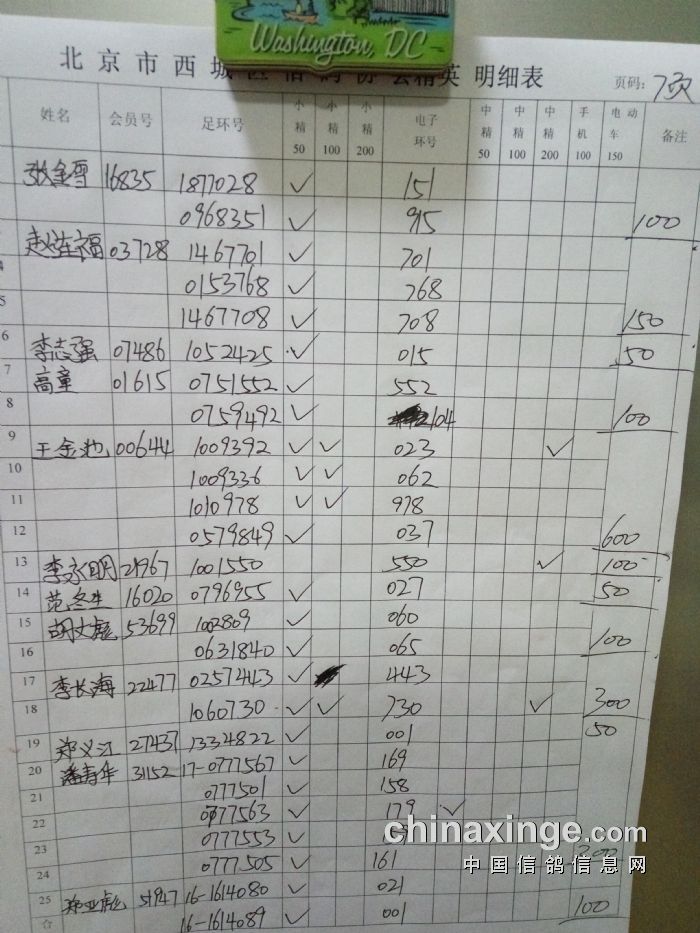 Washington, DC
北京市西城区信鸽协会精英 明细表 页码: 7页
姓名 会员号 足环号 小精50 小精100 小精200 电子环号 中精50 中精100 中精200 手机100 电动车150 备注
张金雪 16835 1877028 ✓ 151
0968351 ✓ 915 100
赵连福 03728 1467701 ✓ 701
4 0153768 ✓ 768
5 1467708 ✓ 708 150
6 李志强 07486 1052425 ✓ 015 50
7 高童 01615 0751552 ✓ 552
8 0759492 ✓ 104 100
9 王金池 00644 1009392 ✓ ✓ 023 ✓
10 1009336 ✓ ✓ 062
11 1010978 ✓ ✓ 978
12 0579849 ✓ 037 600
13 李永明 21967 1001550 550 ✓ 100
14 范冬生 16020 0796955 ✓ 027 50
15 胡文彪 53699 1002809 ✓ 060
16 0631840 ✓ 065 100
17 李长海 22477 02574443 ✓ 443
18 1060730 ✓ ✓ 730 ✓ 300
19 郑义江 27437 13324822 ✓ 001 50
20 潘寿华 31152 17-0777567 ✓ 169
21 0777501 ✓ 158
22 0777563 ✓ 179 ✓
23 0777553 ✓
24 0777505 ✓ 161 300
25 郑亚彪 51947 16-1614080 ✓ 021
☆ 16-1614089 ✓ 001 100
chinaxinge.com
中国信鸽信息网